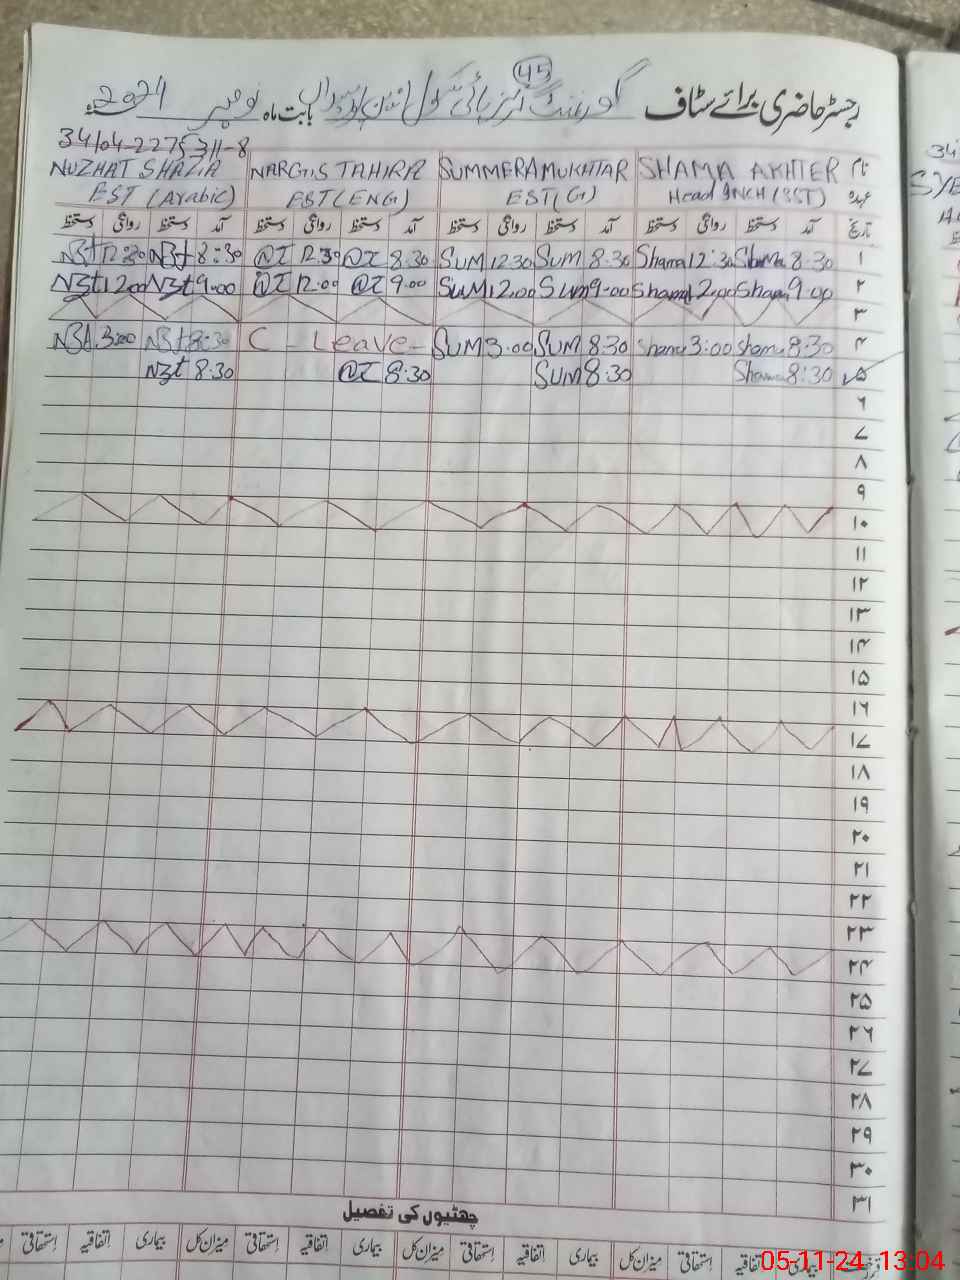 رجسٹر حاضری برائے سٹاف گورنمنٹ گرلز ہائی سکول بابت ماہ نومبر 2024ء
45
نام SHAMA AKHTER SUMMERA MUKHTAR NARGIS TAHIRA NUZHAT SHAZIA
عہدہ Head INCH (SST) EST (G) EST (ENG) EST (Arabic)
تاریخ آمد دستخط روانگی دستخط آمد دستخط روانگی دستخط آمد دستخط روانگی دستخط آمد دستخط روانگی دستخط
۱ 8:30 Shama 12:30 Shama 8.30 SUM 12.30 SUM 8.30 12.30 8:30 Nzt 12:30 Nzt
۲ 9.00 Shama 12.00 Shama 9.00 SUM 12.00 SUM 9.00 12.00 9.00 Nzt 12.00 Nzt
۳
۴ 8:30 Shama 3:00 Shama 8.30 SUM 3.00 SUM C - Leave - 8:30 Nzt 3:00 Nzt
۵ 8:30 Shama 8.30 SUM 8.30 8.30 Nzt
۶
۷
۸
۹
۱۰
۱۱
۱۲
۱۳
۱۴
۱۵
۱۶
۱۷
۱۸
۱۹
۲۰
۲۱
۲۲
۲۳
۲۴
۲۵
۲۶
۲۷
۲۸
۲۹
۳۰
۳۱
چھٹیوں کی تفصیل
بیماری اتفاقیہ استحقاقی میزان کل بیماری اتفاقیہ استحقاقی میزان کل بیماری اتفاقیہ استحقاقی میزان کل بیماری اتفاقیہ استحقاقی
05-11-24 13:04